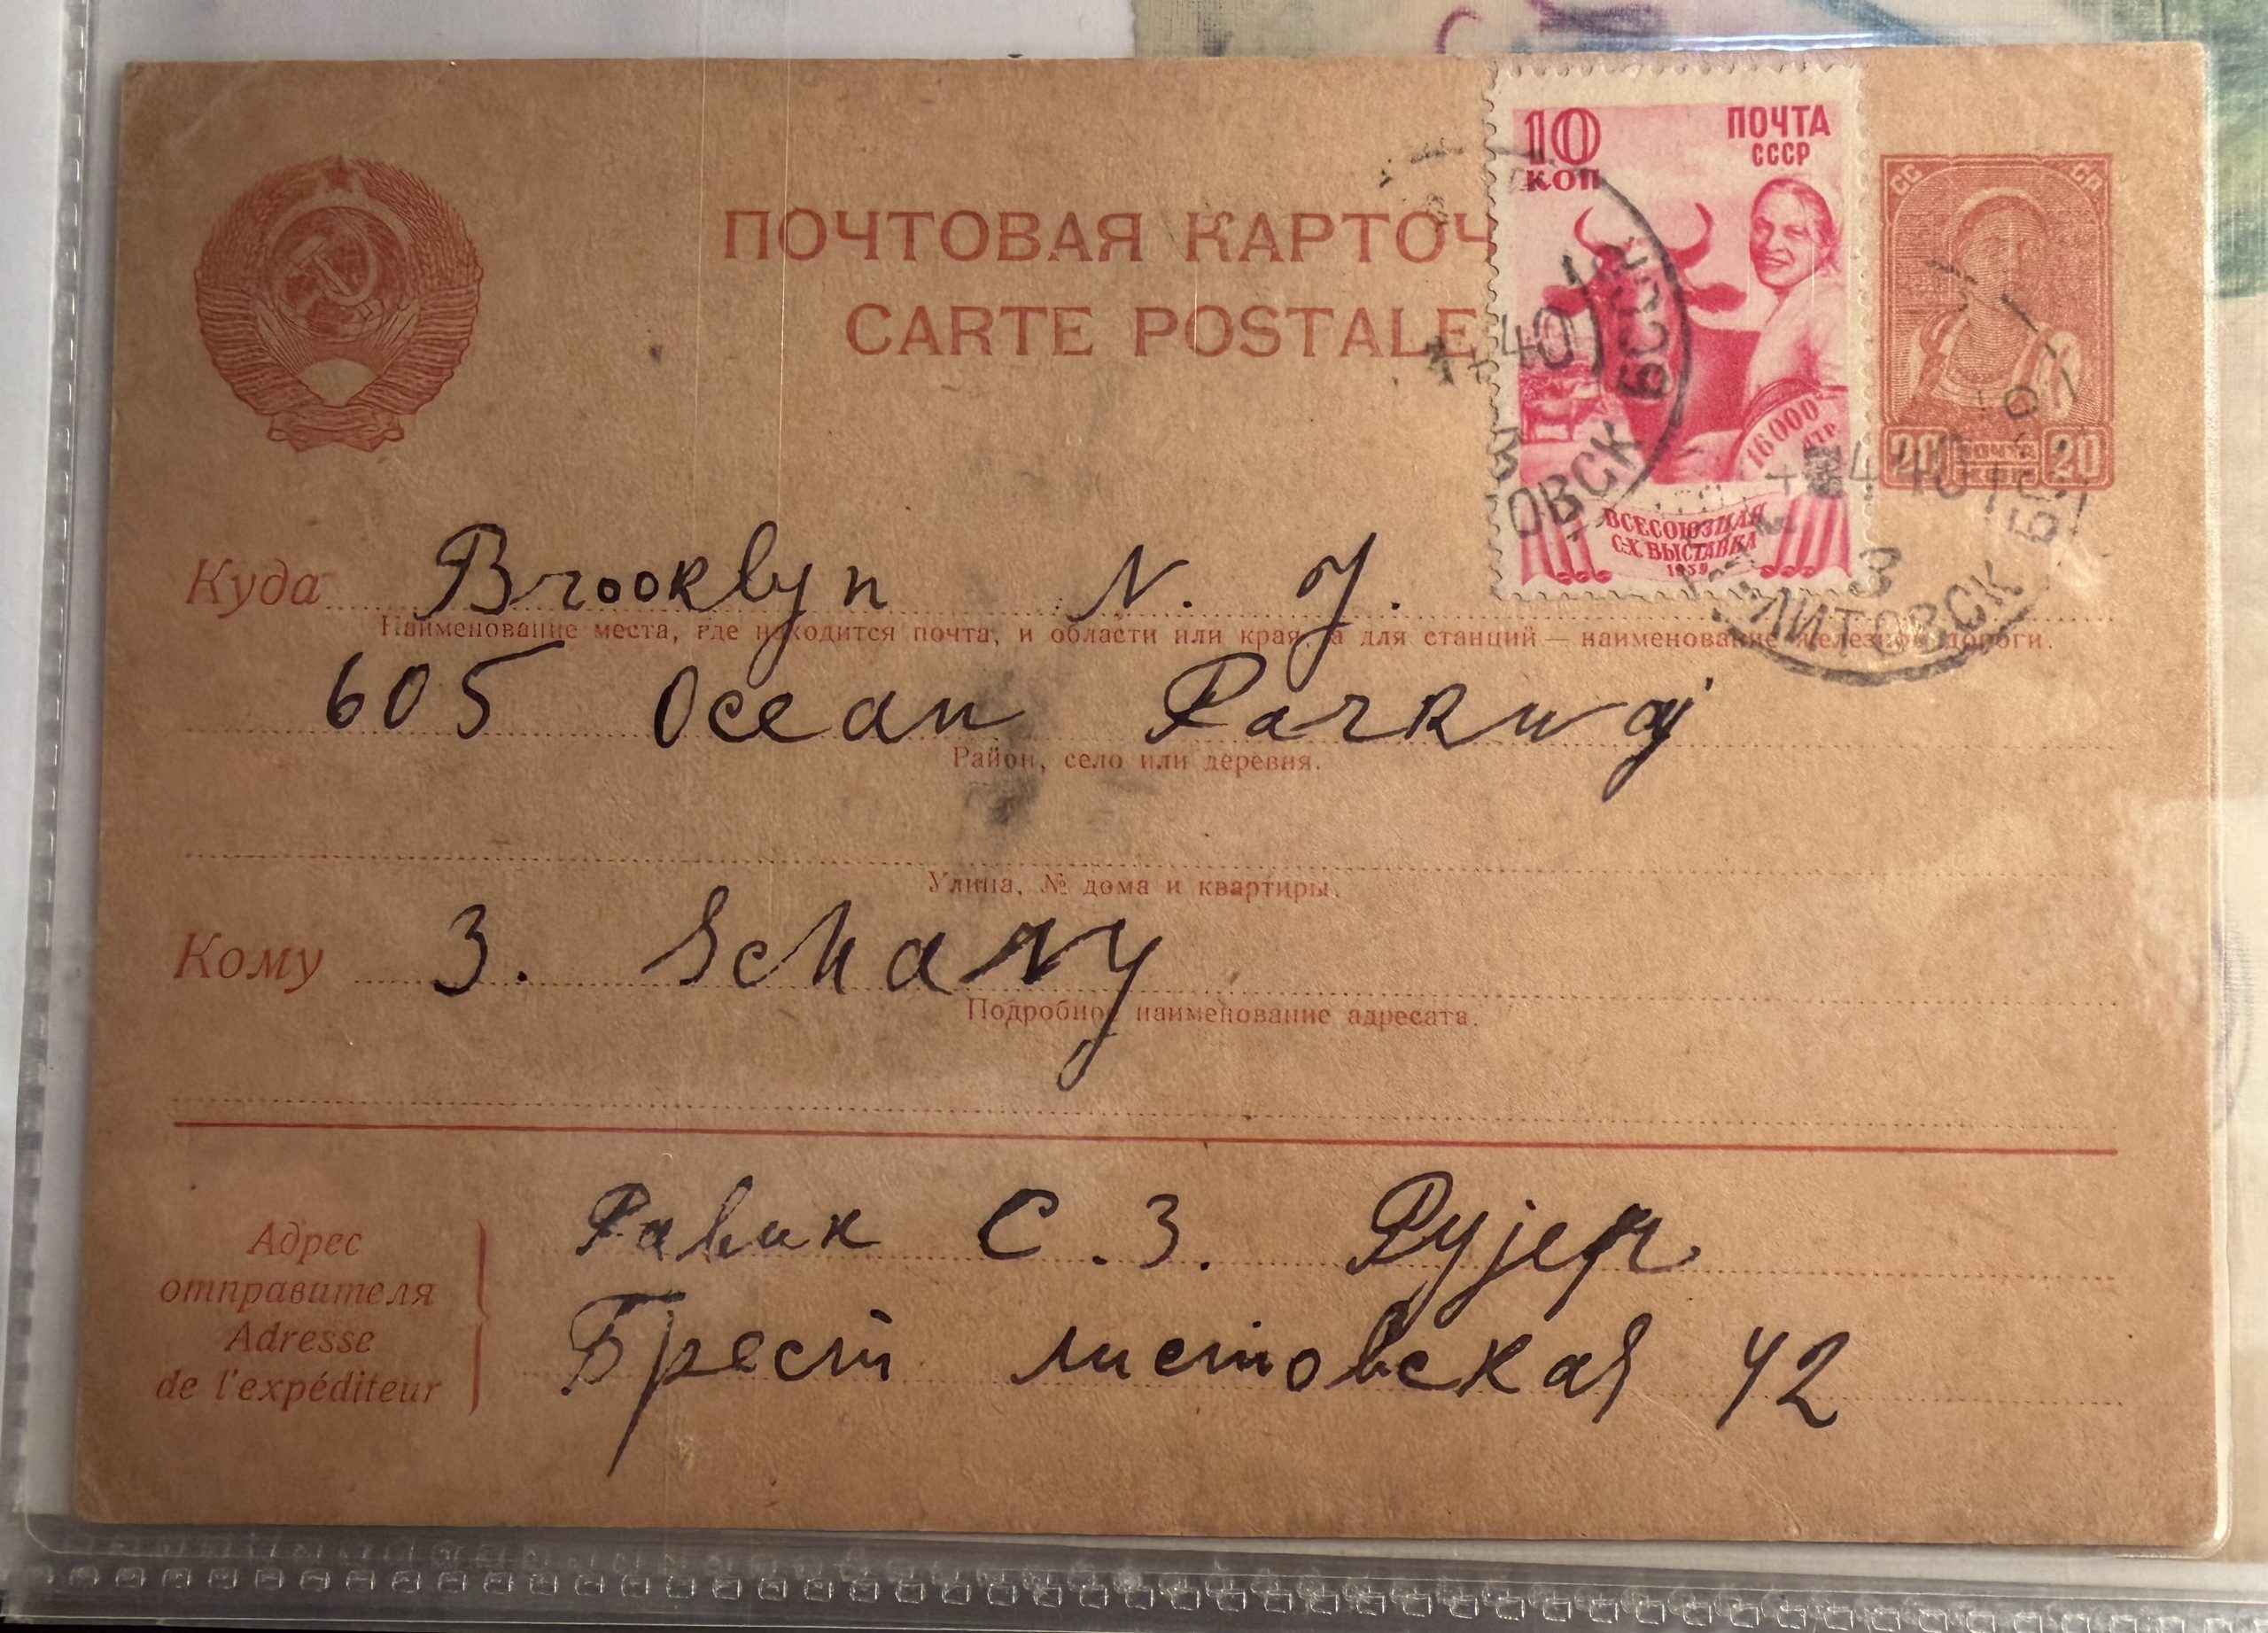 ПОЧТОВАЯ КАРТОЧ
CARTE POSTALE
10 КОП
ПОЧТА СССР
16000 ЛТР
ВСЕСОЮЗНАЯ
С.Х. ВЫСТАВКА
1939
СС СР
20 ПОЧТА 20
40
ОВСК БССР
4 40
ЛИТОВСК
Куда Brooklyn N. Y.
Наименование места, где находится почта, и области или края, а для станций — наименование железной дороги.
605 Ocean Parkway
Район, село или деревня.
Улица, № дома и квартиры.
Кому З. Schary
Подробное наименование адресата.
Адрес
отправителя
Adresse
de l'expéditeur
Равик С. З. Ружея
Брест литовская 42